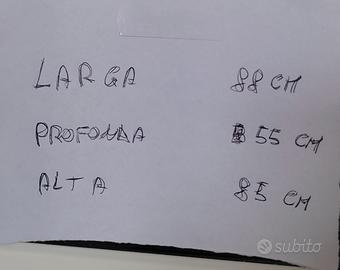 LARGA 88 CM
PROFONDA 55 CM
ALTA 85 CM
subito